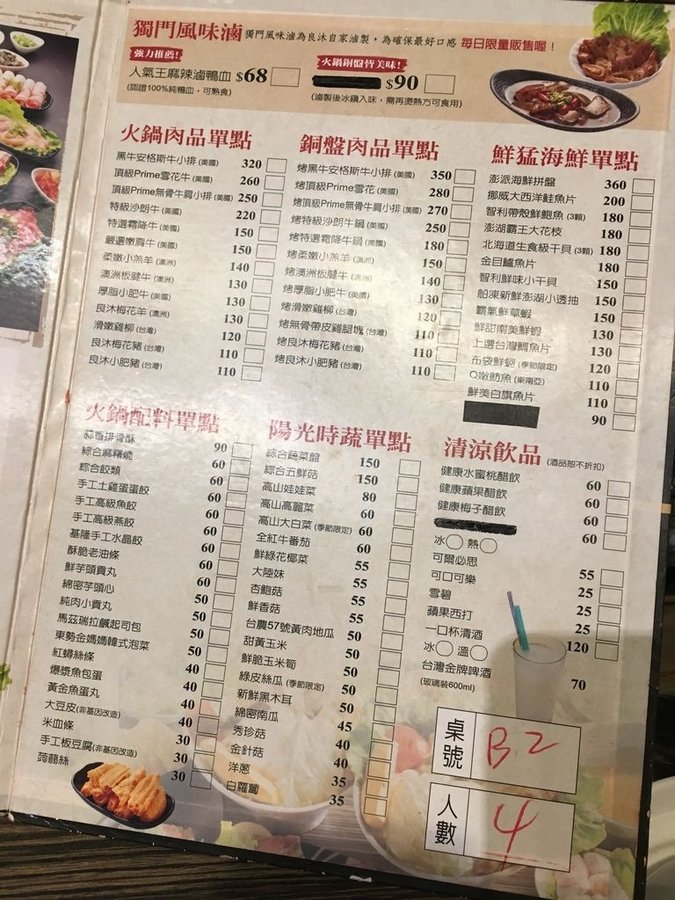 獨門風味滷 獨門風味滷為良沐自家滷製,為確保最好口感 每日限量販售喔!
強力推薦!
人氣王麻辣滷鴨血 $68
(認證100%純鴨血,可熟食)
火鍋銅盤皆美味!
$90
(滷製後冰鎮入味,需再燙熱方可食用)
火鍋肉品單點
黑牛安格斯牛小排(美國) 320
頂級Prime雪花牛(美國) 260
頂級Prime無骨牛肩小排(美國) 250
特級沙朗牛(美國) 220
特選霜降牛(美國) 150
嚴選嫩肩牛(美國) 150
柔嫩小羔羊(澳洲) 140
澳洲板腱牛(澳洲) 130
厚脂小肥牛(美國) 130
良沐梅花羊(澳洲) 130
滑嫩雞柳(台灣) 120
良沐梅花豬(台灣) 110
良沐小肥豬(台灣) 110
銅盤肉品單點
烤黑牛安格斯牛小排(美國) 350
烤頂級Prime雪花(美國) 280
烤頂級Prime無骨牛肩小排(美國) 270
烤特級沙朗牛鍋(美國) 250
烤特選霜降牛鍋(美國) 180
烤柔嫩小羔羊(澳洲) 150
烤澳洲板腱牛(澳洲) 140
烤厚脂小肥牛(美國) 130
烤滑嫩雞柳(台灣) 120
烤無骨帶皮雞腿塊(台灣) 110
烤良沐梅花豬(台灣) 110
烤良沐小肥豬(台灣) 110
鮮猛海鮮單點
澎派海鮮拼盤 360
挪威大西洋鮭魚片 200
智利帶殼鮮鮑魚(3顆) 180
澎湖霸王大花枝 180
北海道生食級干貝(3顆) 180
金目鱸魚片 180
智利鮮味小干貝 150
船凍新鮮澎湖小透抽 150
霸氣鮮草蝦 150
鮮甜南美鮮蝦 130
上選台灣鯛魚片 130
布袋鮮蚵(季節限定) 120
Q嫩魴魚(東南亞) 110
鮮美白旗魚片 110
90
火鍋配料單點
蒜香排骨酥 90
綜合麻糬燒 60
綜合餃類 60
手工土雞蛋蛋餃 60
手工高級魚餃 60
手工高級燕餃 60
基隆手工水晶餃 60
酥脆老油條 60
鮮芋頭貢丸 60
綿密芋頭心 60
純肉小貢丸 50
馬茲瑞拉鹹起司包 50
東勢金媽媽韓式泡菜 50
紅蟳絲條 50
爆漿魚包蛋 40
黃金魚蛋丸 40
大豆皮(非基因改造) 40
米血條 40
手工板豆腐(非基因改造) 30
蒟蒻絲 30
30
陽光時蔬單點
綜合蔬菜盤 150
綜合五鮮菇 150
高山娃娃菜 80
高山高麗菜 60
高山大白菜(季節限定) 60
全紅牛番茄 60
鮮綠花椰菜 55
大陸妹 55
杏鮑菇 55
鮮香菇 55
台農57號黃肉地瓜 50
甜黃玉米 50
鮮脆玉米筍 50
綠皮絲瓜(季節限定) 50
新鮮黑木耳 50
綿密南瓜 50
秀珍菇 45
金針菇 40
洋蔥 35
白蘿蔔 35
清涼飲品 (酒品恕不折扣)
健康水蜜桃醋飲 60
健康蘋果醋飲 60
健康梅子醋飲 60
60
冰○ 熱○
可爾必思 55
可口可樂 25
雪碧 25
蘋果西打 25
一口杯清酒 120
冰○ 溫○
台灣金牌啤酒 70
(玻璃裝600ml)
桌號 B2
人數 4